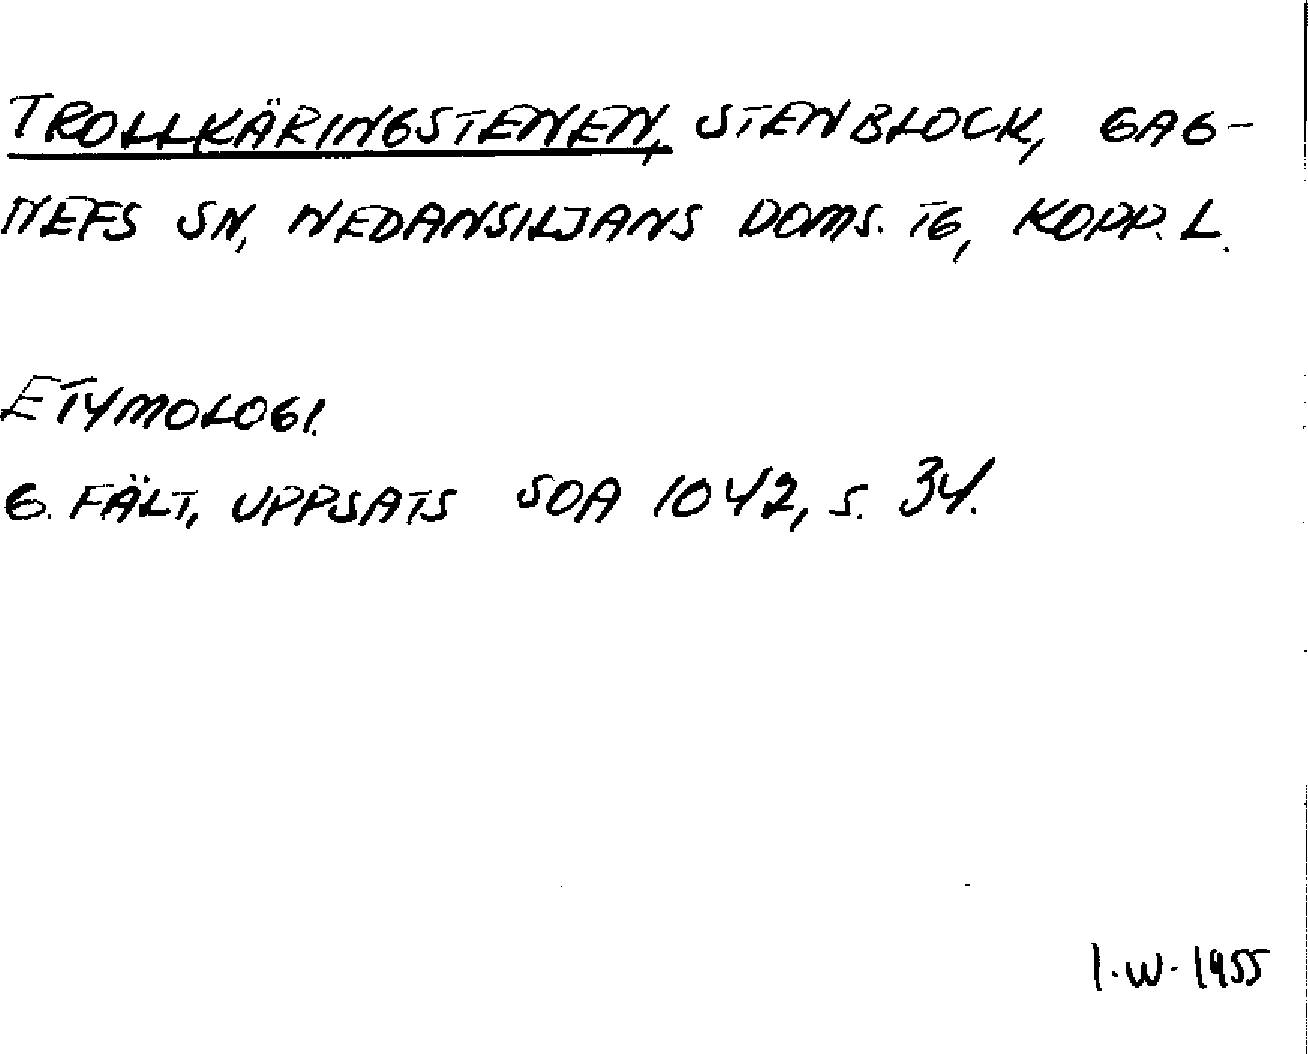 TROLLKÄRINGSTENEN, STENBLOCK, GAG-
NEFS SN, NEDANSILJANS DOMS. TG, KOPP. L.
ETYMOLOGI.
G. FÄLT, UPPSATS SOA 1042, S. 34.
I.W. 1955